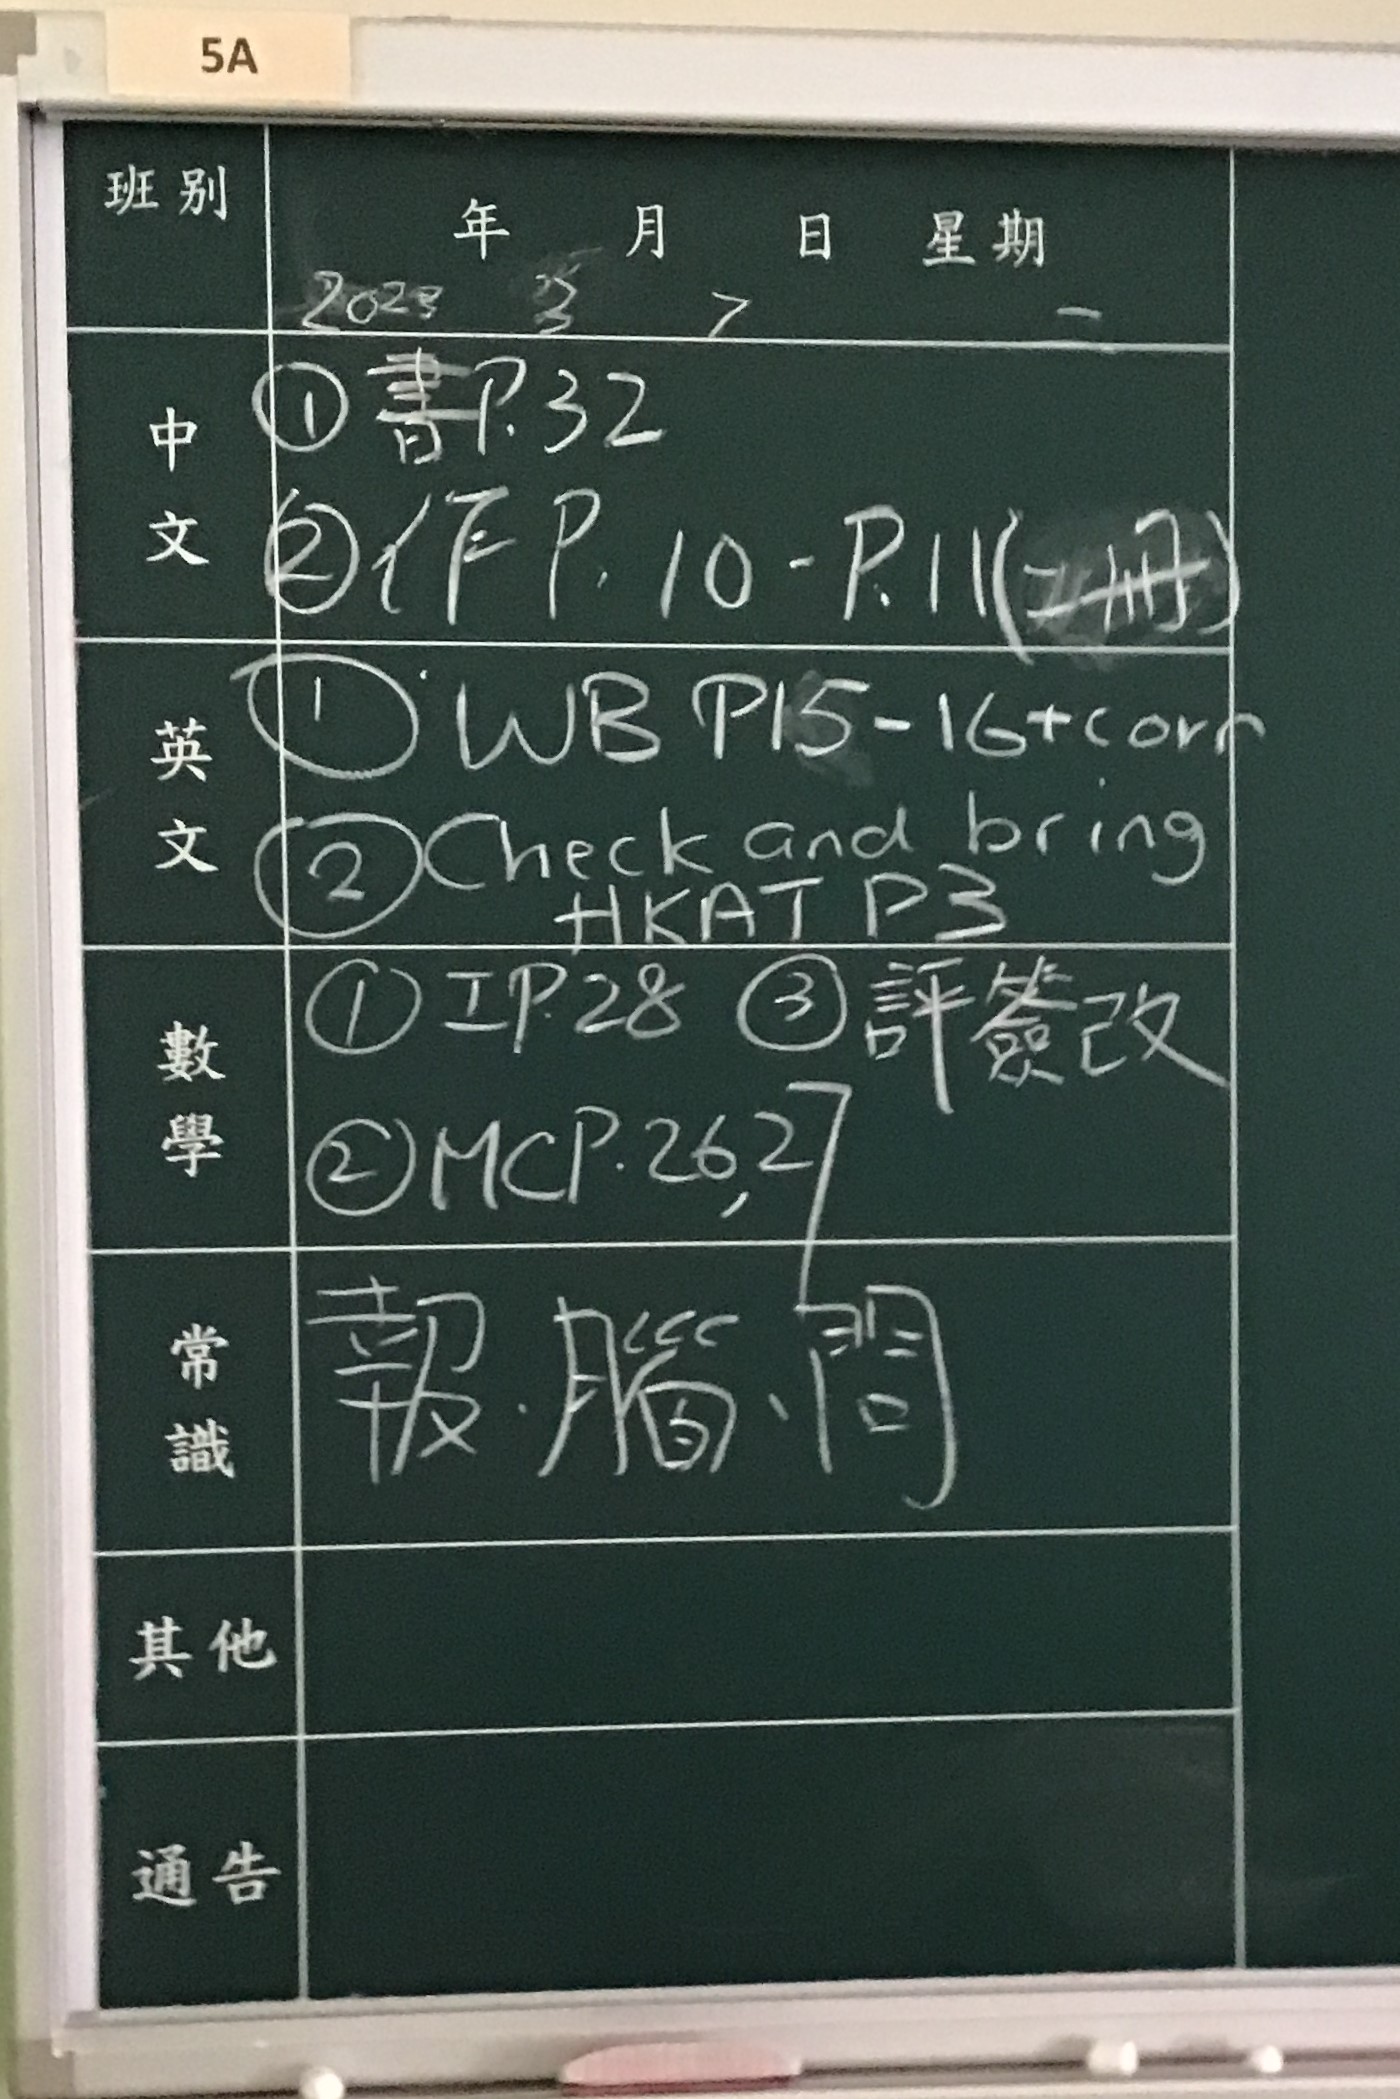 5A
班別 年 月 日 星期
2023 3 7 二
中文
①書P.32
②作P.10-P.11(二冊)
英文
① WB P15-16+corr
②Check and bring
HKAT P3
數學
①IP.28 ③評簽改
②MCP.26,27
常識
報、腦、問
其他
通告